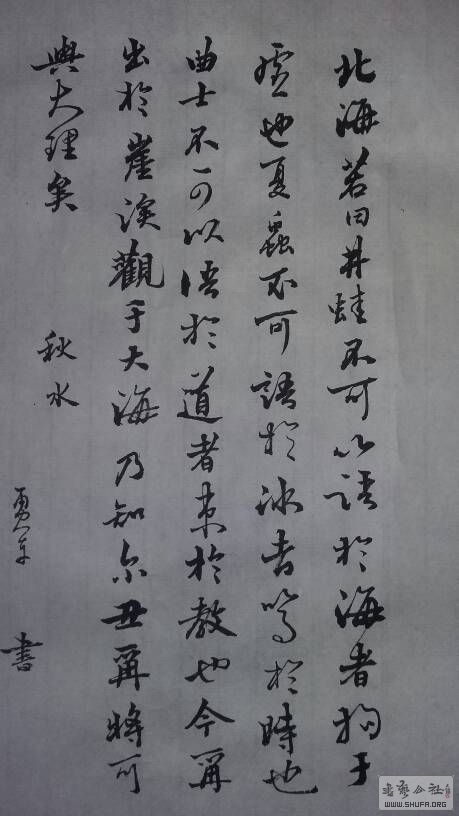 北海若曰井蛙不可以語於海者拘于
虛也夏蟲不可語於冰者篤於時也
曲士不可以語於道者束於教也今爾
出於崖涘觀于大海乃知尔丑爾將可
與大理矣
秋水
勇
書
书艺公社
WWW.SHUFA.ORG